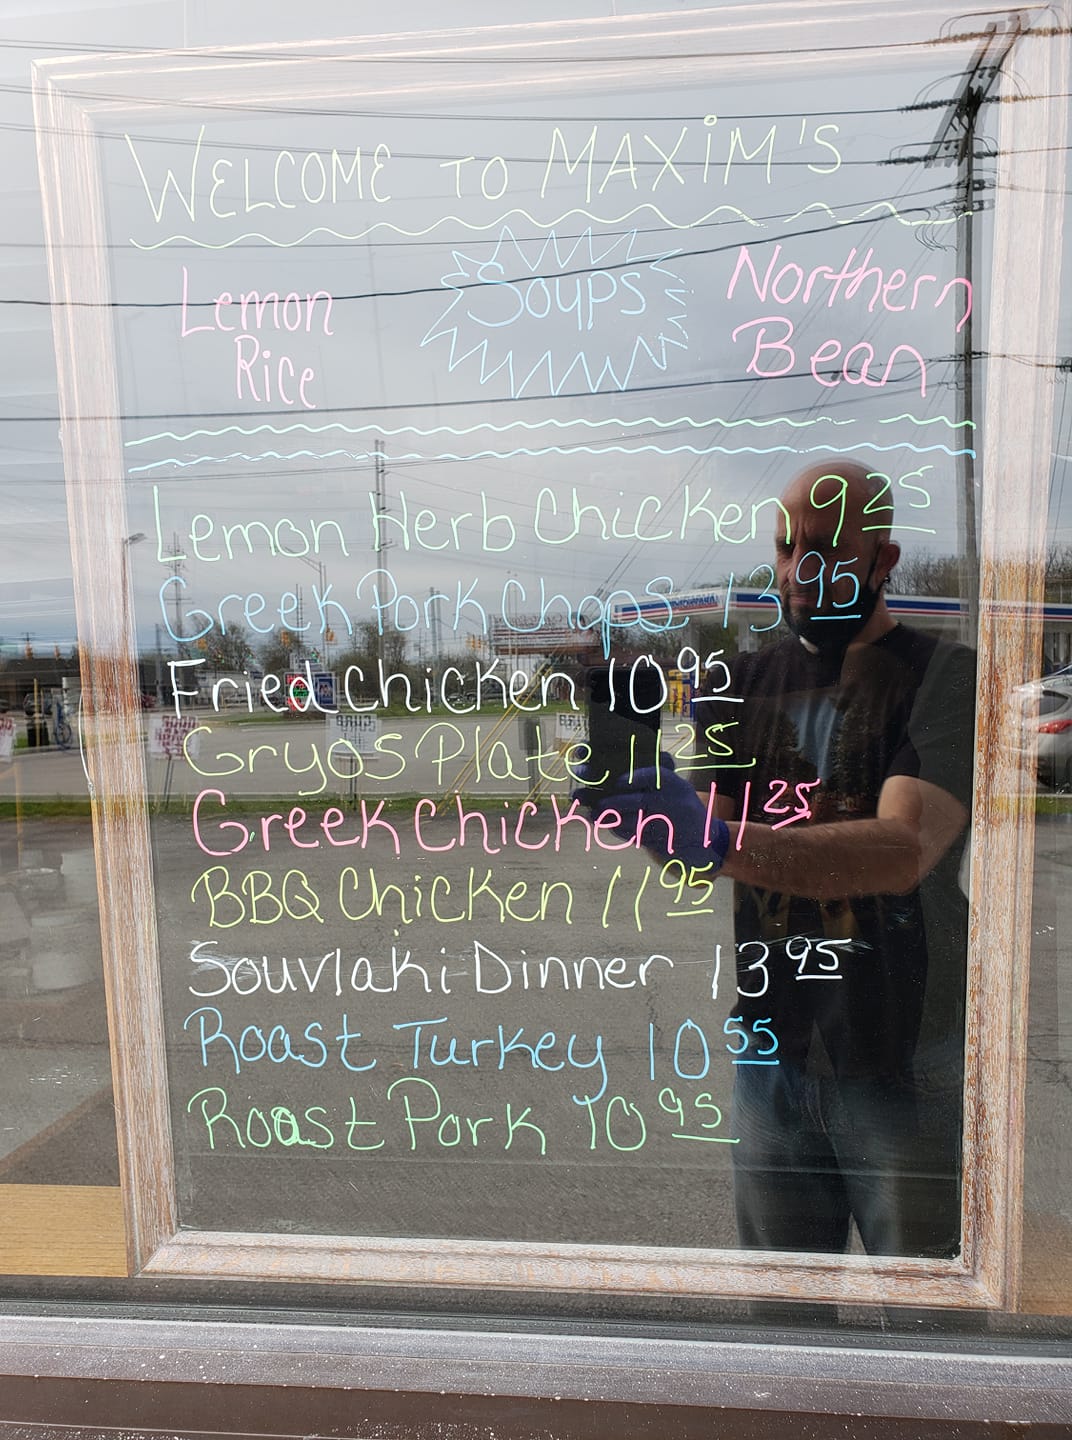 WELCOME TO MAXiM'S
Soups
Lemon
Rice
Northern
Bean
Lemon Herb Chicken 9 25
Greek Pork Chops 13 95
Fried Chicken 10 95
Gryos Plate 11 25
Greek Chicken 11 25
BBQ Chicken 11 95
Souvlaki Dinner 13 95
Roast Turkey 10 55
Roast Pork 10 95